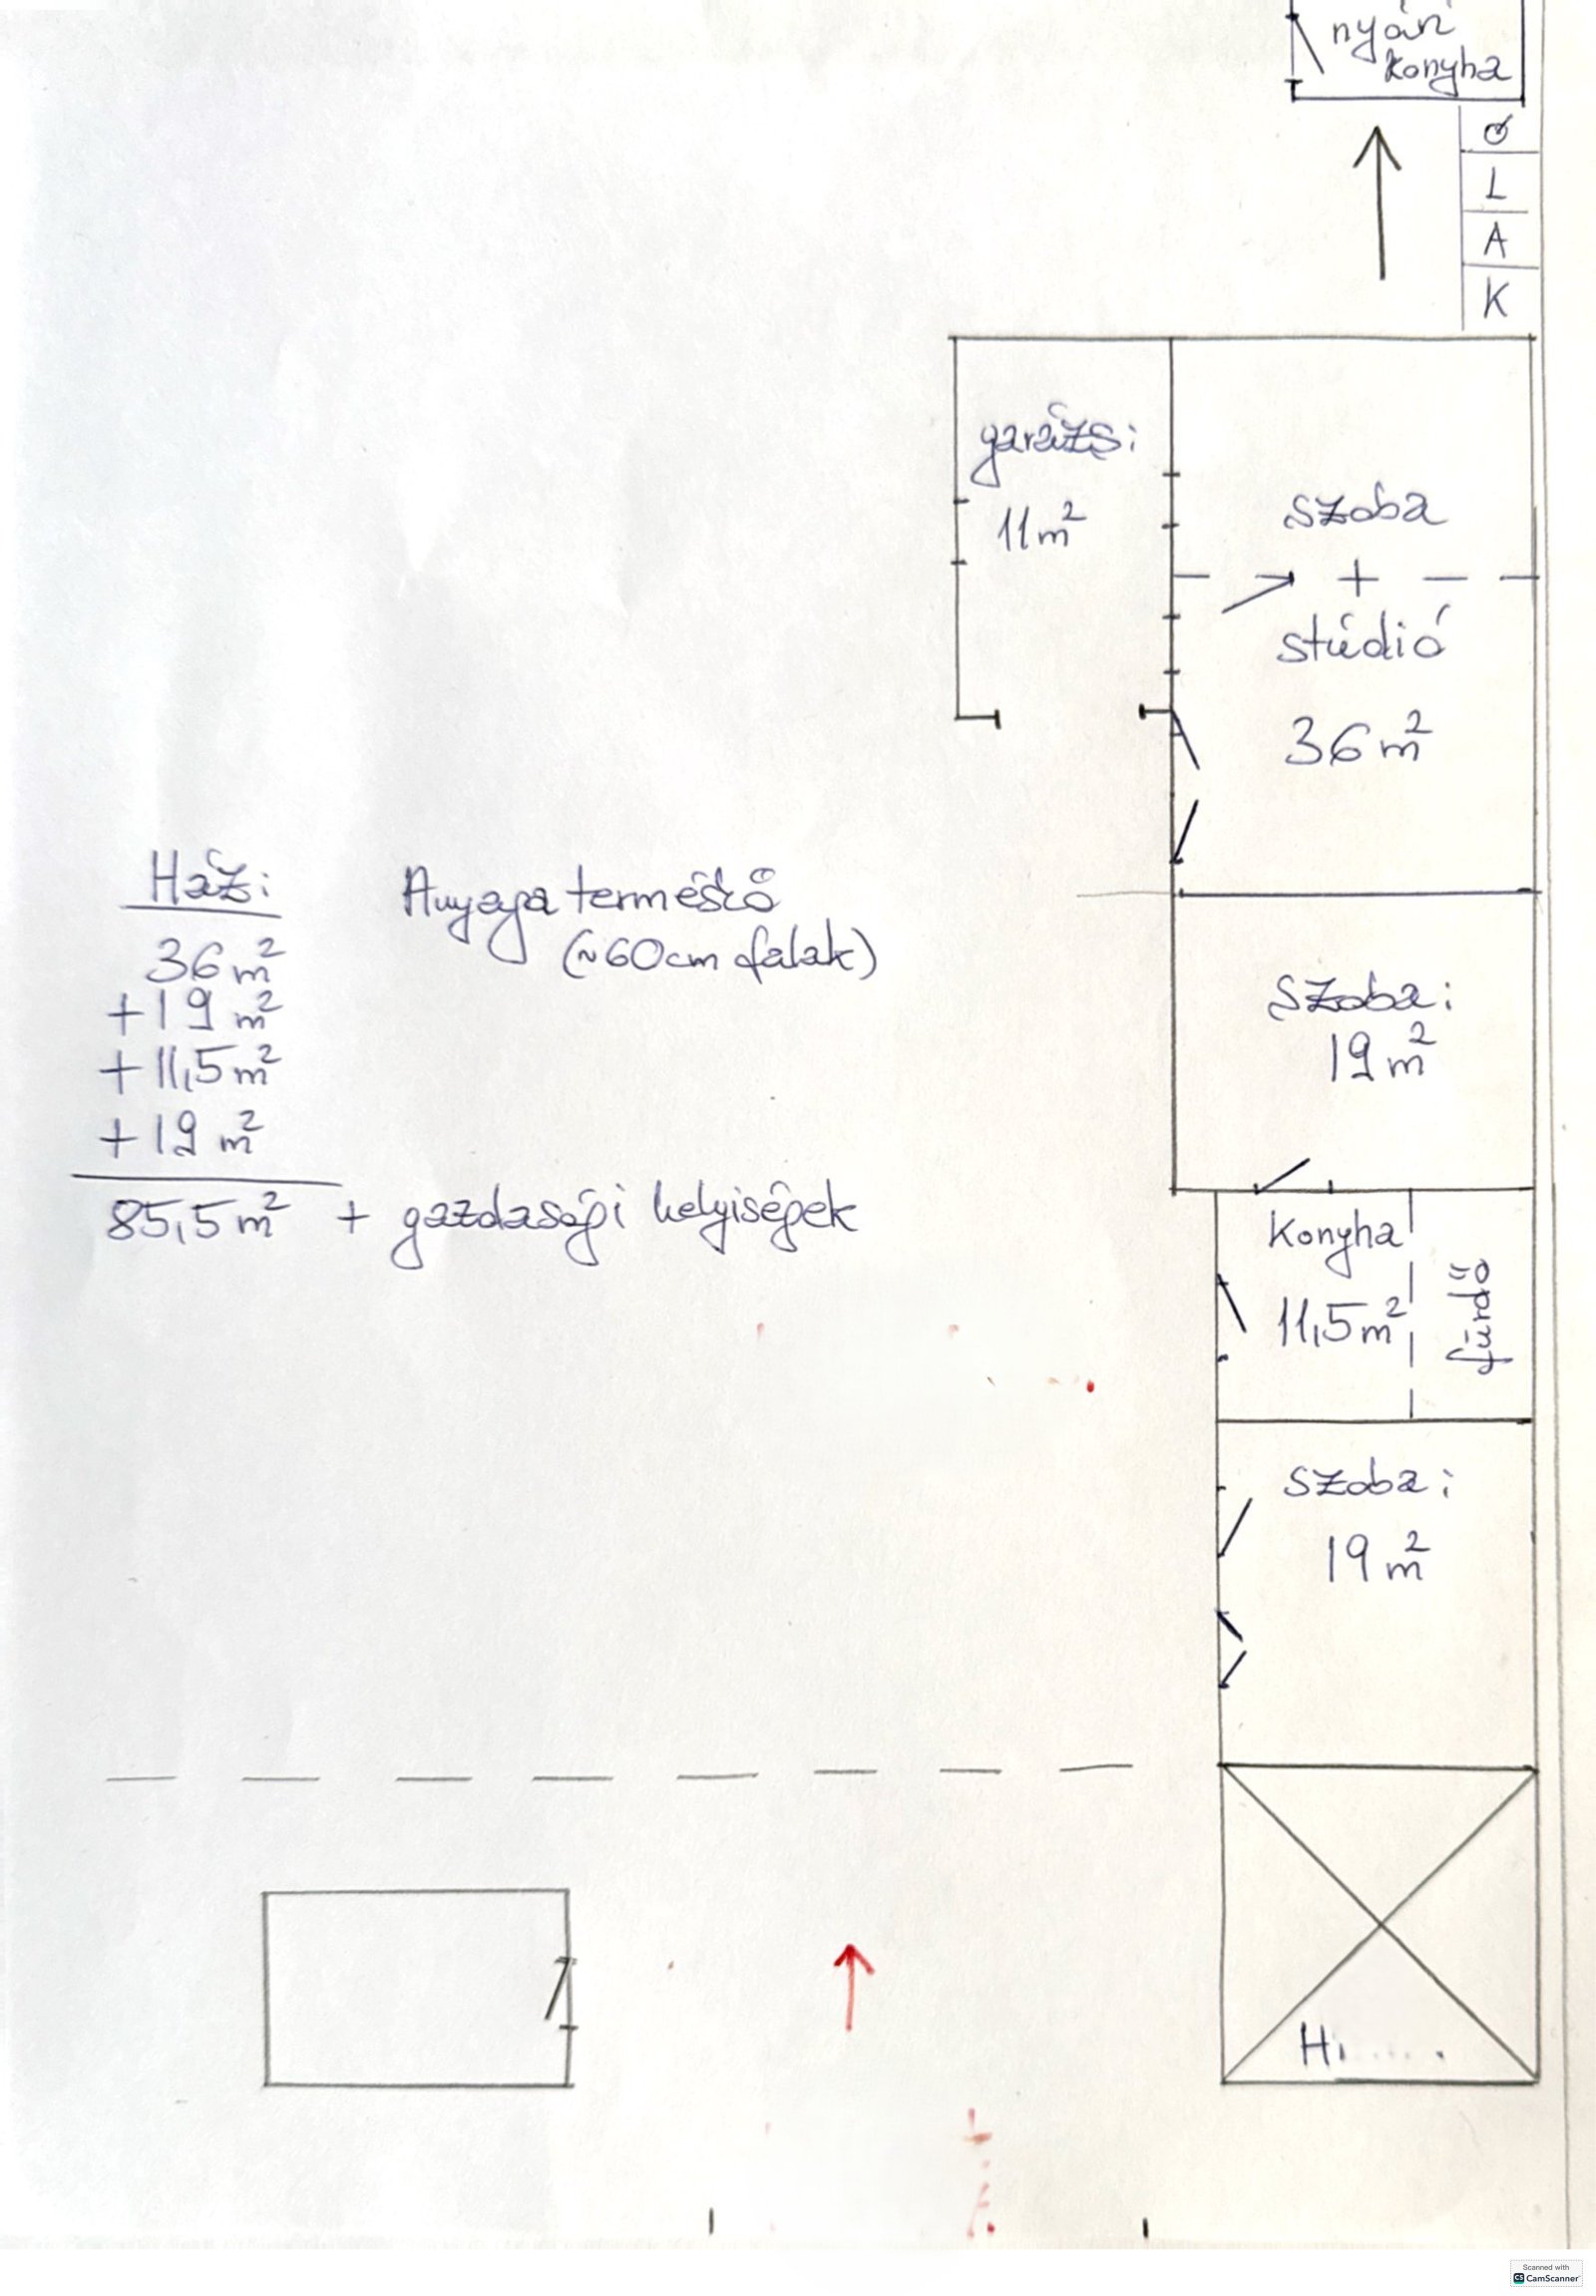 nyári
konyha
Ó
L
A
K
garázs:
11 m²
szoba
+
stúdió
36 m²
Ház:
36 m²
+ 19 m²
+ 11,5 m²
+ 19 m²
85,5 m² + gazdasági helyiségek
Anyaga terméskő
(~60cm falak)
Szoba:
19 m²
Konyha
11,5 m²
fürdő
Szoba:
19 m²
Scanned with
CS CamScanner